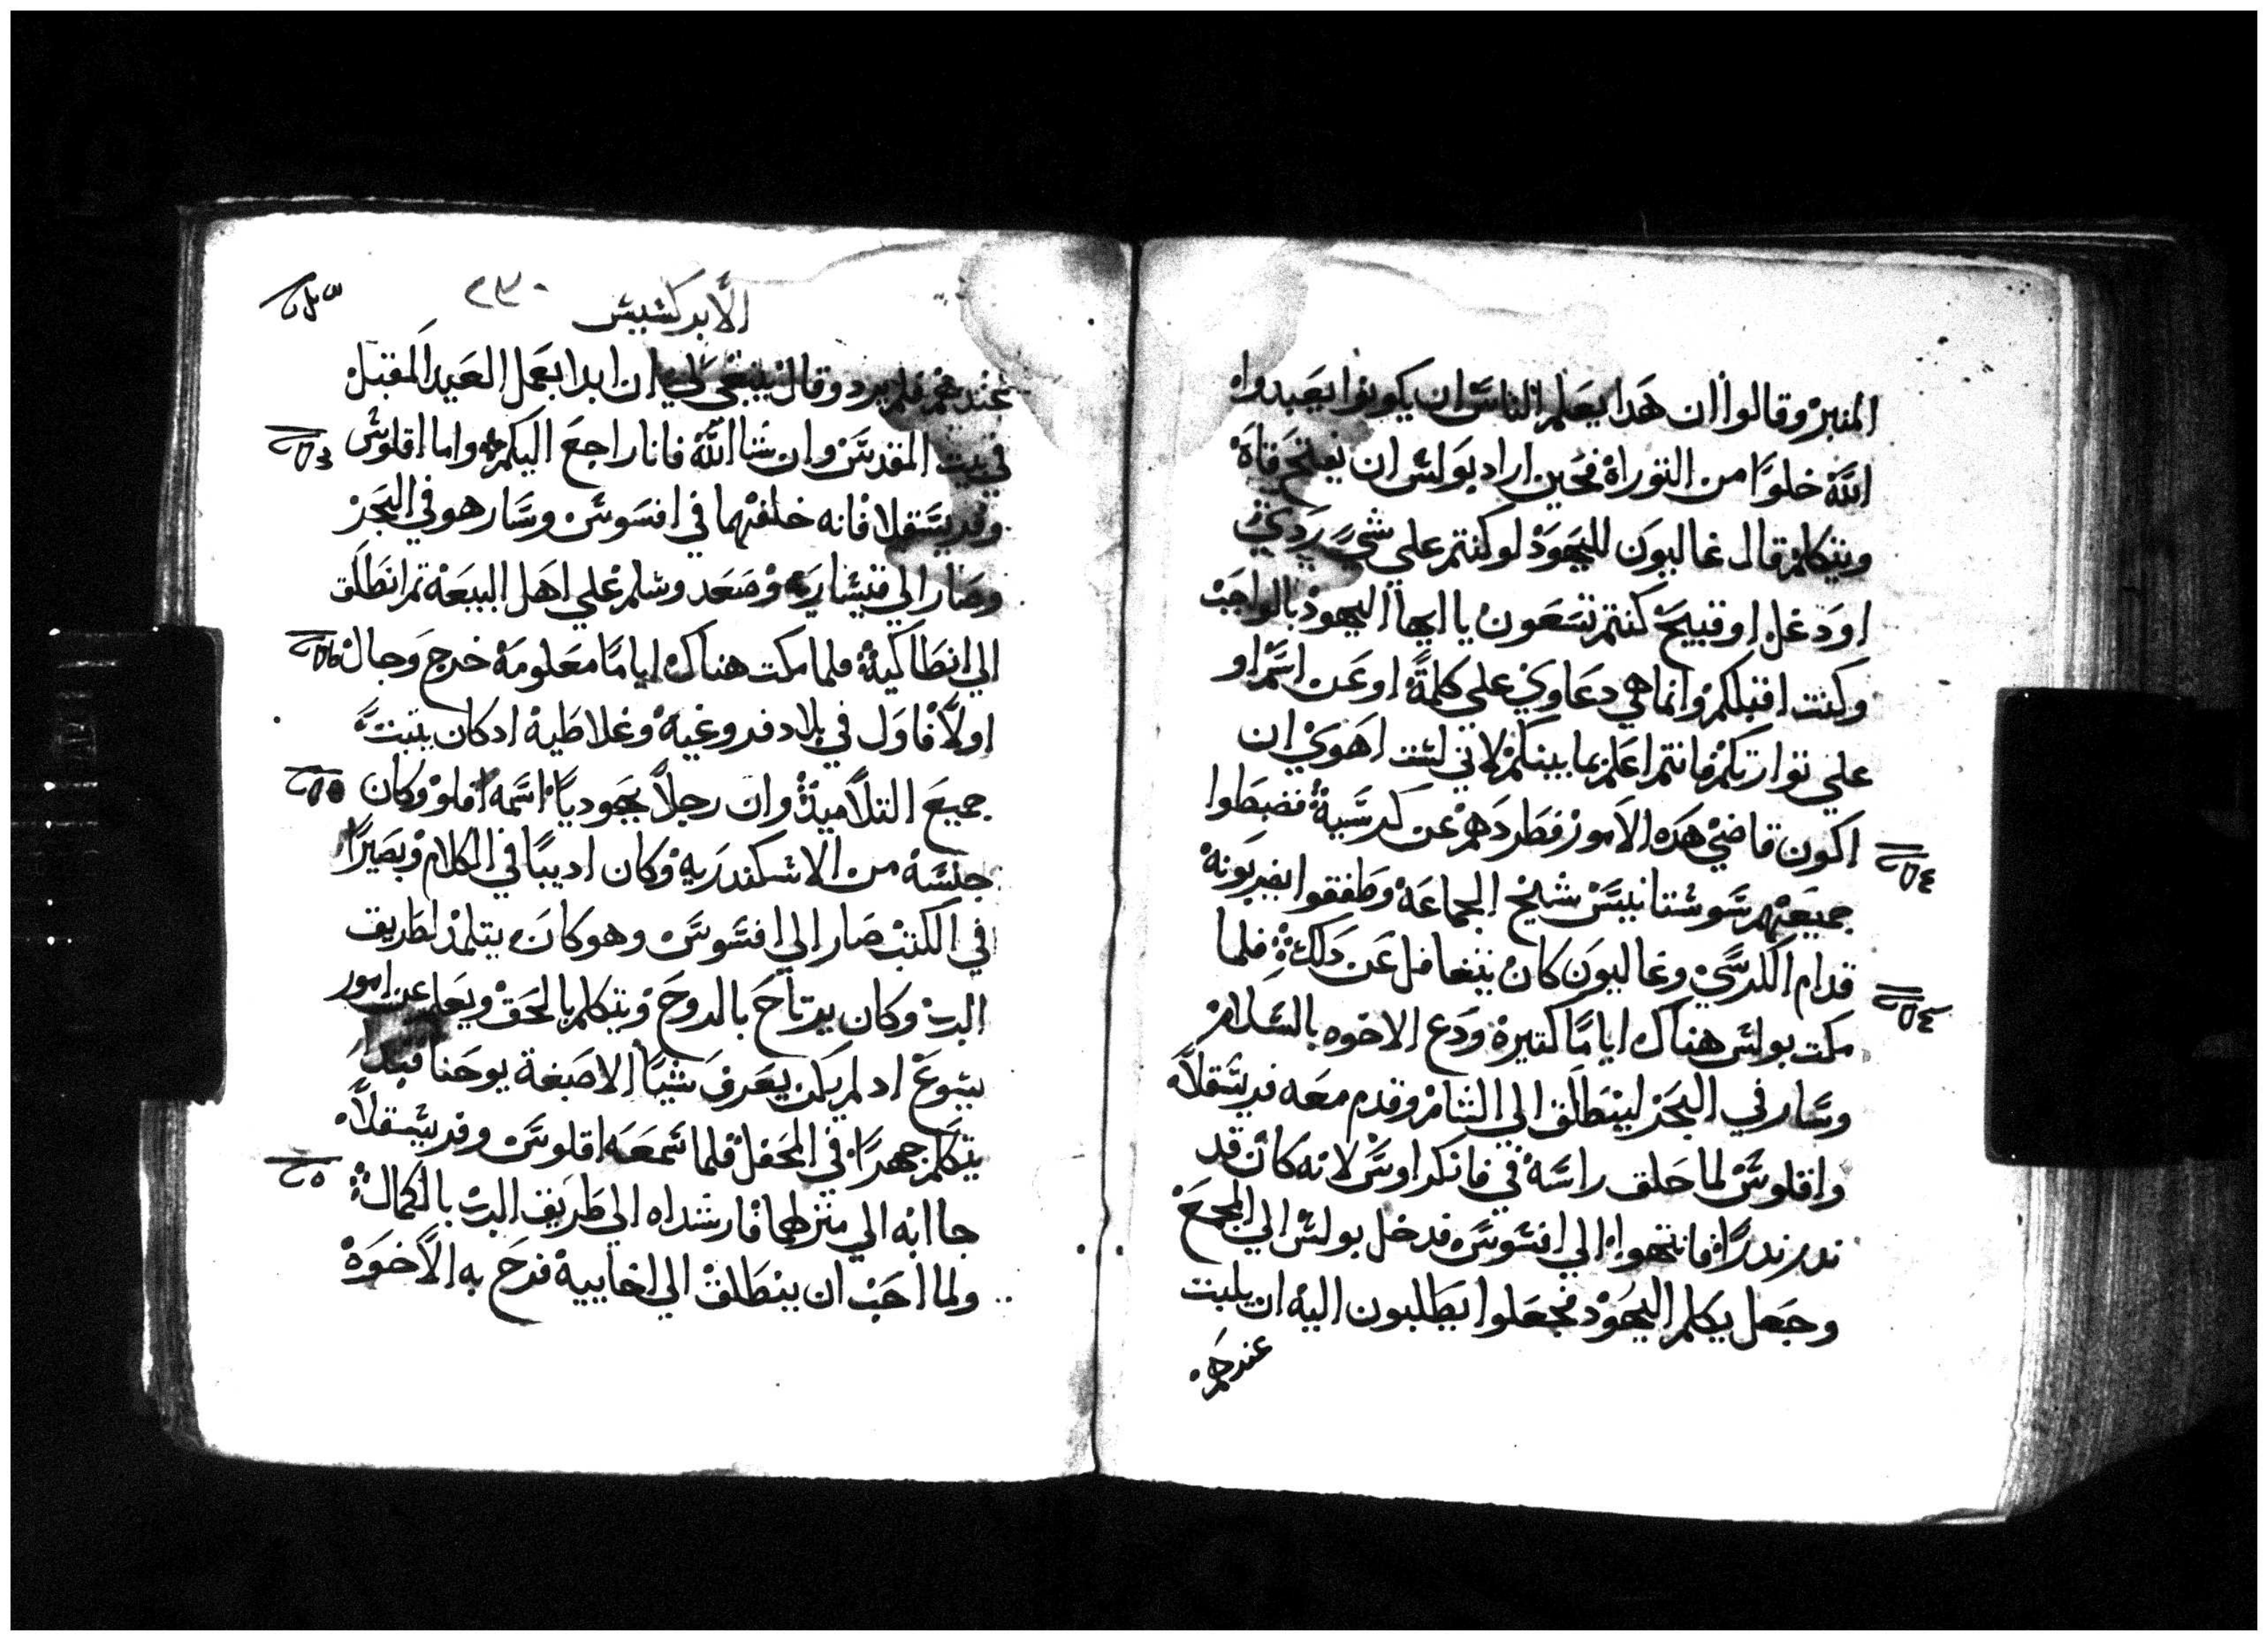 المنبر وقالوا ان هدا يعلم الناس ان يكونوا يعبدوا
الله خلوا من التوراة فحين اراد بولس ان يفتح فاه
ويتكلم قال غاليون لليهود لو كنتم علي شي ردي
او دغل او قبيح كنتم تسعون يا ايها اليهود بالواجب
وكنت اقبلكم وانما هي دعاوي علي كلمة او عن اسم او
علي توراتكم فانتم اعلم بما بينكم لاني لست اهوي ان
اكون قاضي هده الامور فطردهم عن كرسيه فضبطوا
جميعهم سوستانيس شيخ الجماعة وطفقوا يضربونه
قدام الكرسي وغاليون كان يتغافل عن دلك فلما
مكت بولس هناك اياما كتيرة ودع الاخوه بالسلام
وسار في البحر لينطلق الي الشام وقدم معه فريسقلا
واقلوس لما حلق راسه في فانكراوس لانه كان قد
ندر ندرا فانتهوا الي افسوس فدخل بولس الي المجمع
وجعل يكلم اليهود فجعلوا يطلبون اليه ان يلبت
عندهم
الابركسيس
٢٣٠
عندهم فلم يرد وقال ينبغي لي ان ابدا بعمل العيد المقبل
في بيت المقدس وان شا الله فانا راجع اليكم واما اقلوس
وفريسقلا فانه خلفهما في افسوس وسار هو في البحر
وصار الي قيسارية وصعد وسلم علي اهل البيعة تم انطلق
الي انطاكية فلما مكت هناك اياما معلومة خرج وجال
اولا فاول في بلاد فروغية وغلاطية ادكان يتبت
جميع التلاميذ وان رجلا يهوديا اسمه افلو وكان
جنسه من الاسكندرية وكان اديبا في الكلام وبصيرا
في الكتب صار الي افسوس وهو كان يتلمذ لطريق
الرب وكان يرتاح بالروح ويتكلم بالحق ويعلم عن امور
يسوع اد لم يكن يعرف شيا الا صبغة يوحنا فبدا
يتكلم جهرا في المحفل فلما سمعه اقلوس وفريسقلا
جاابه الي منزلهما فارشداه الي طريق الرب بالكمال
ولما احب ان ينطلق الي اخاييه فرح به الاخوة